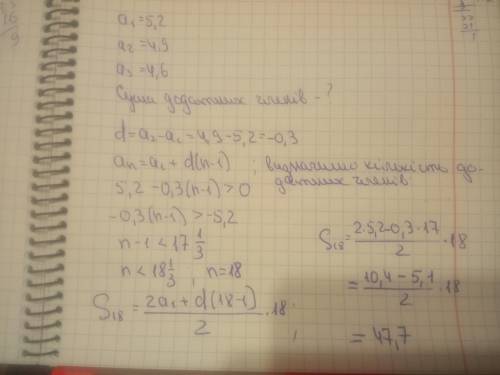 a₁ = 5,2
a₂ = 4,9
a₃ = 4,6
Сума додатних членів - ?
d = a₂ - a₁ = 4,9 - 5,2 = -0,3
aₙ = a₁ + d(n-1) ; визначимо кількість до-
датних членів:
5,2 - 0,3(n-1) > 0
-0,3(n-1) > -5,2
n - 1 < 17 1/3
n < 18 1/3 ; n = 18
S₁₈ = (2a₁ + d(18-1))/2 · 18
S₁₈ = (2·5,2 - 0,3·17)/2 · 18
= (10,4 - 5,1)/2 · 18
= 47,7